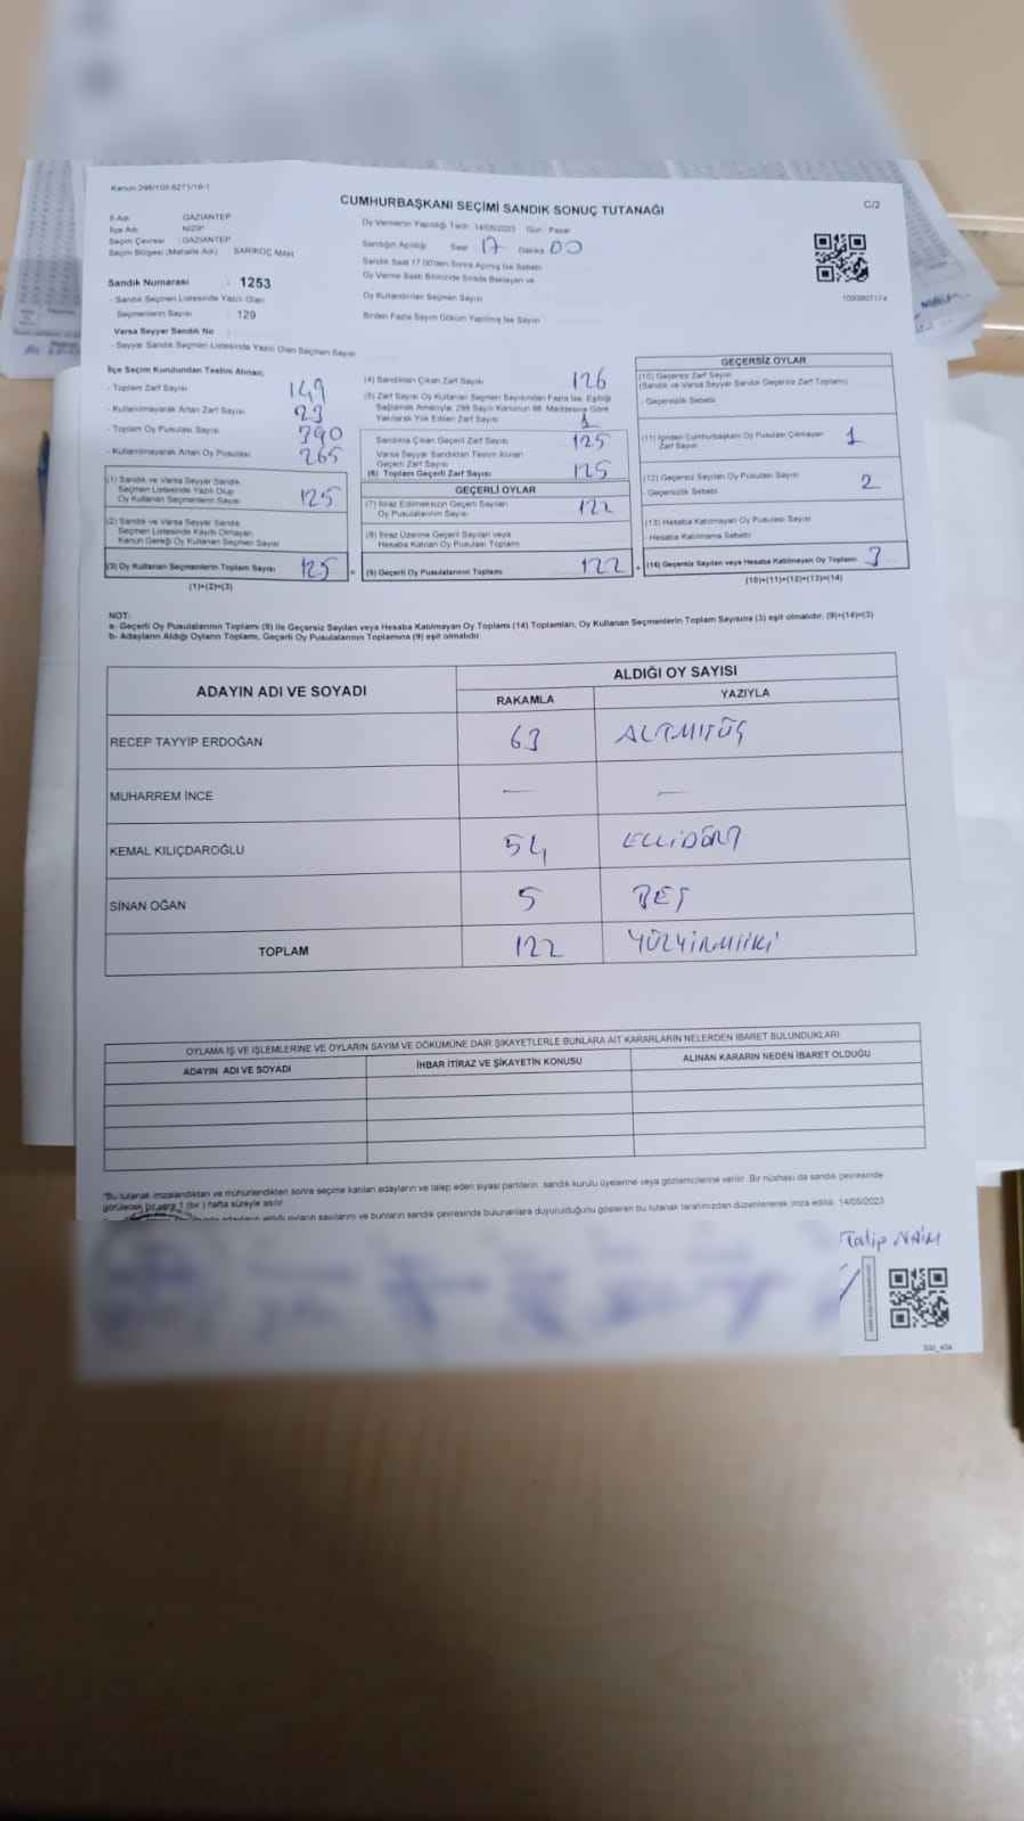 Kanun 298/105-6271/19-1
CUMHURBAŞKANI SEÇİMİ SANDIK SONUÇ TUTANAĞI
C/2
İl Adı GAZİANTEP
İlçe Adı NİZİP
Seçim Çevresi : GAZİANTEP
Seçim Bölgesi (Mahalle Adı) SARIKOÇ Mah.
Oy Vermenin Yapıldığı Tarih: 14/05/2023 Gün: Pazar
Sandığın Açıldığı Saat 17 Dakika 00
Sandık Saat 17.00'den Sonra Açılmış İse Sebebi
Oy Verme Saati Bitiminde Sırada Bekleyen ve
Oy Kullandırılan Seçmen Sayısı
Birden Fazla Sayım Döküm Yapılmış İse Sayısı
Sandık Numarası : 1253
- Sandık Seçmen Listesinde Yazılı Olan
Seçmenlerin Sayısı : 129
Varsa Seyyar Sandık No :
- Seyyar Sandık Seçmen Listesinde Yazılı Olan Seçmen Sayısı
İlçe Seçim Kurulundan Teslim Alınan;
- Toplam Zarf Sayısı 149
- Kullanılmayarak Artan Zarf Sayısı 23
- Toplam Oy Pusulası Sayısı 390
- Kullanılmayarak Artan Oy Pusulası 265
(1) Sandık ve Varsa Seyyar Sandık
Seçmen Listesinde Yazılı Olup
Oy Kullanan Seçmenlerin Sayısı 125
(2) Sandık ve Varsa Seyyar Sandık
Seçmen Listesinde Kayıtlı Olmayan,
Kanun Gereği Oy Kullanan Seçmen Sayısı
(3) Oy Kullanan Seçmenlerin Toplam Sayısı 125
(1)+(2)=(3)
(4) Sandıktan Çıkan Zarf Sayısı 126
(5) Zarf Sayısı Oy Kullanan Seçmen Sayısından Fazla İse, Eşitliği
Sağlamak Amacıyla; 298 Sayılı Kanunun 98. Maddesine Göre
Yakılarak Yok Edilen Zarf Sayısı 1
Sandıkta Çıkan Geçerli Zarf Sayısı 125
Varsa Seyyar Sandıktan Teslim Alınan
Geçerli Zarf Sayısı
(6) Toplam Geçerli Zarf Sayısı 125
GEÇERLİ OYLAR
(7) İtiraz Edilmeksizin Geçerli Sayılan
Oy Pusulalarının Sayısı 122
(8) İtiraz Üzerine Geçerli Sayılan veya
Hesaba Katılan Oy Pusulası Toplamı
(9) Geçerli Oy Pusulalarının Toplamı 122
1090807174
GEÇERSİZ OYLAR
(10) Geçersiz Zarf Sayısı
(Sandık ve Varsa Seyyar Sandık Geçersiz Zarf Toplamı)
- Geçersizlik Sebebi
(11) İçinden Cumhurbaşkanı Oy Pusulası Çıkmayan
Zarf Sayısı 1
(12) Geçersiz Sayılan Oy Pusulası Sayısı
- Geçersizlik Sebebi 2
(13) Hesaba Katılmayan Oy Pusulası Sayısı
- Hesaba Katılmama Sebebi
(14) Geçersiz Sayılan veya Hesaba Katılmayan Oy Toplamı 3
(10)+(11)+(12)+(13)=(14)
NOT:
a- Geçerli Oy Pusulalarının Toplamı (9) ile Geçersiz Sayılan veya Hesaba Katılmayan Oy Toplamı (14) Toplamları, Oy Kullanan Seçmenlerin Toplam Sayısına (3) eşit olmalıdır. (9)+(14)=(3)
b- Adayların Aldığı Oyların Toplamı, Geçerli Oy Pusulalarının Toplamına (9) eşit olmalıdır.
ADAYIN ADI VE SOYADI
ALDIĞI OY SAYISI
RAKAMLA YAZIYLA
RECEP TAYYİP ERDOĞAN 63 ALTMIŞÜÇ
MUHARREM İNCE — —
KEMAL KILIÇDAROĞLU 54 ELLİDÖRT
SİNAN OĞAN 5 BEŞ
TOPLAM 122 YÜZYİRMİİKİ
OYLAMA İŞ VE İŞLEMLERİNE VE OYLARIN SAYIM VE DÖKÜMÜNE DAİR ŞİKAYETLERLE BUNLARA AİT KARARLARIN NELERDEN İBARET BULUNDUKLARI
ADAYIN ADI VE SOYADI İHBAR İTİRAZ VE ŞİKAYETİN KONUSU ALINAN KARARIN NEDEN İBARET OLDUĞU
"Bu tutanak imzalandıktan ve mühürlendikten sonra seçime katılan adayların ve talep eden siyasi partilerin sandık kurulu üyelerine veya gözlemcilerine verilir. Bir nüshası da sandık çevresinde
görülecek bir yere 1 (bir) hafta süreyle asılır.
adayların aldığı oyların sayılarını ve bunların sandık çevresinde bulunanlara duyurulduğunu gösteren bu tutanak tarafımızdan düzenlenerek imza edildi. 14/05/2023
Talip NAİM